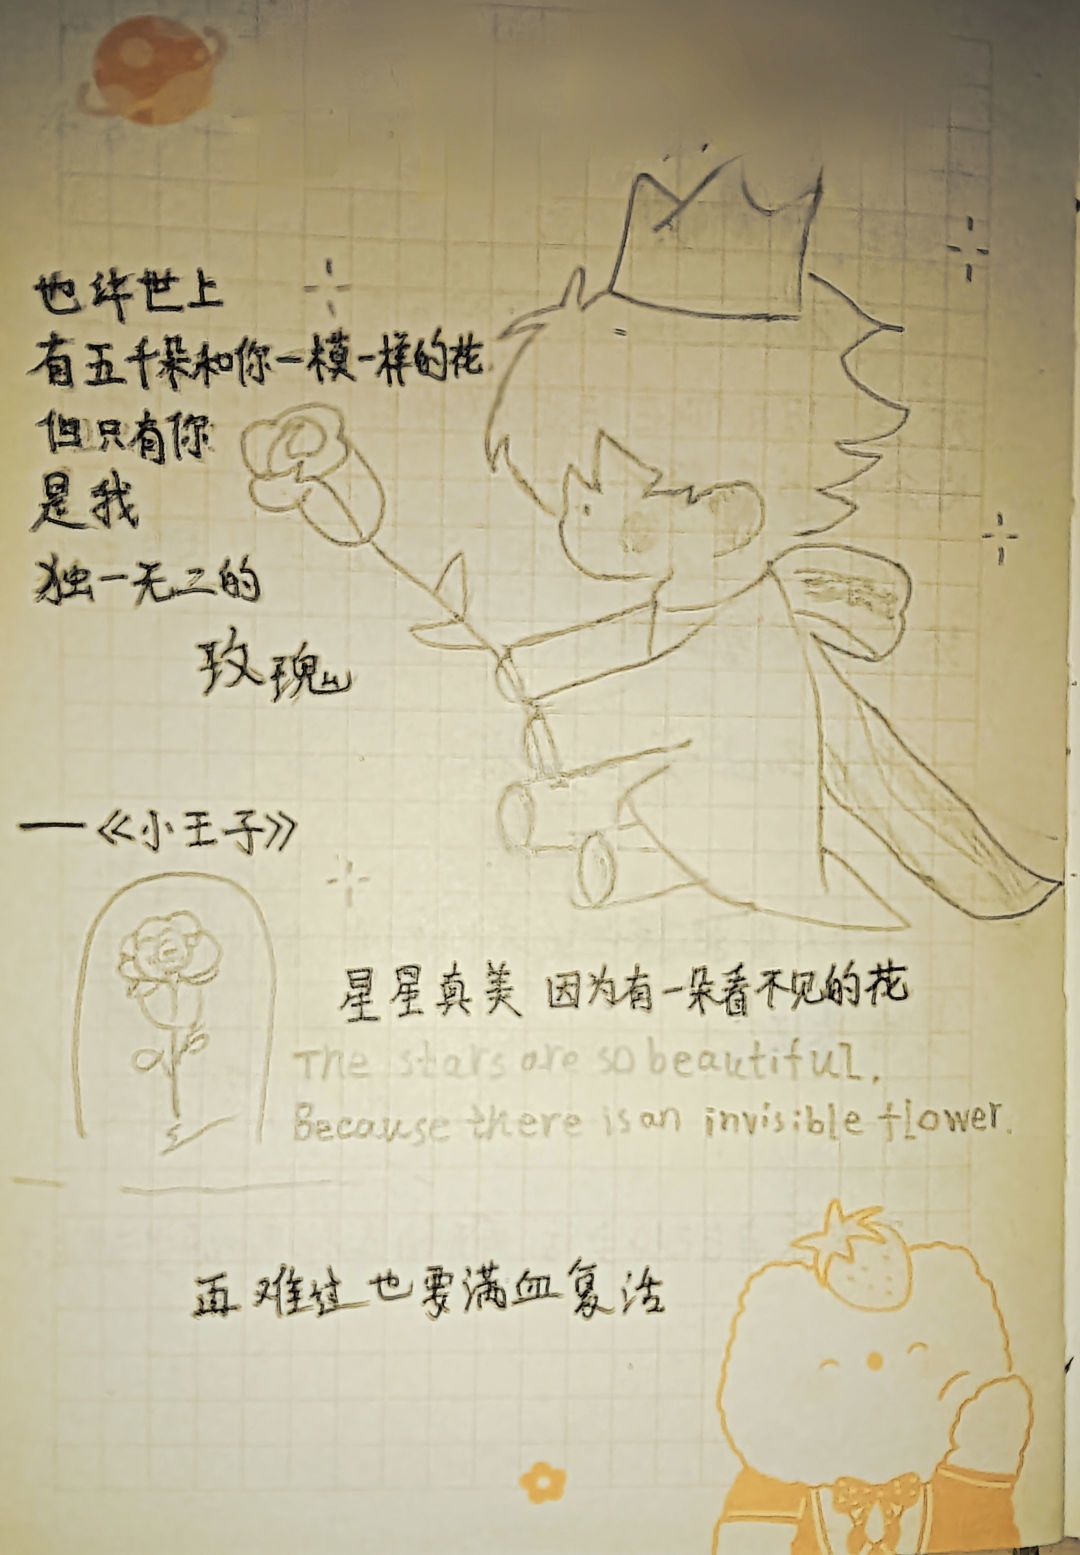 也许世上
有五千朵和你一模一样的花
但只有你
是我
独一无二的
玫瑰
——《小王子》
星星真美 因为有一朵看不见的花
The stars are so beautiful.
Because there is an invisible flower.
再难过也要满血复活